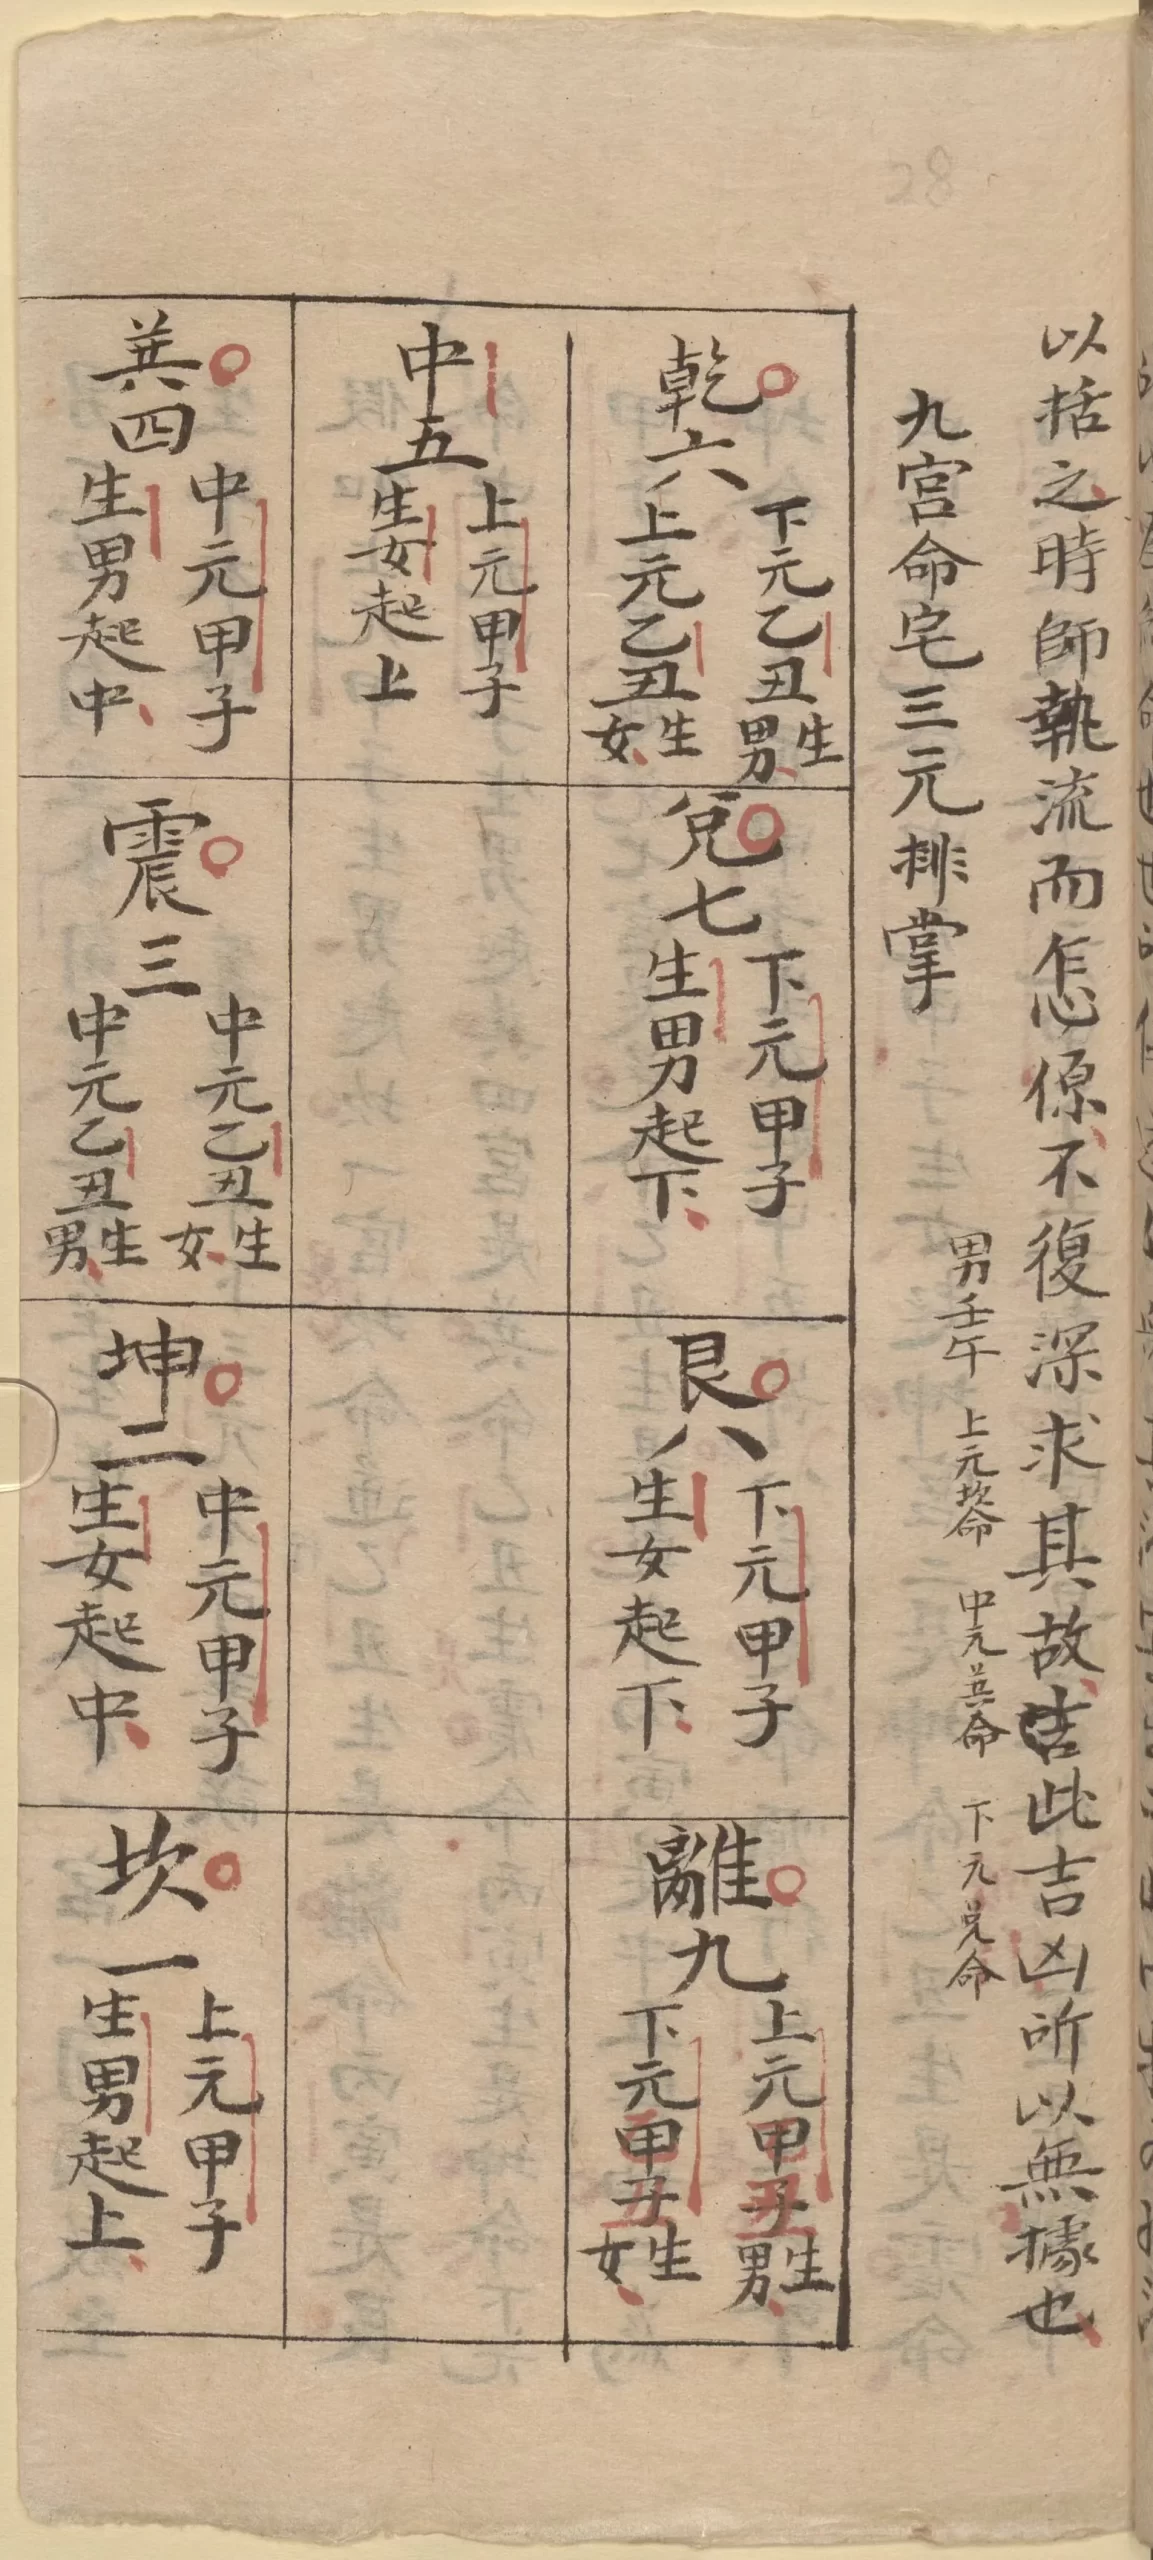 以括之時師執流而怎係不復深求其故吉此吉凶所以無據也
九宮命宅三元排掌
男壬午 上元坎命 中元巽命 下元兌命
乾六
下元乙丑生男
上元乙丑生女
兌七
下元甲子
生男起下
艮八
下元甲子
生女起下
離九
上元甲子生男
下元甲子生女
中五
上元甲子
生女起上
巽四
中元甲子
生男起中
震三
中元乙丑生女
中元乙丑生男
坤二
中元甲子
生女起中
坎一
上元甲子
生男起上